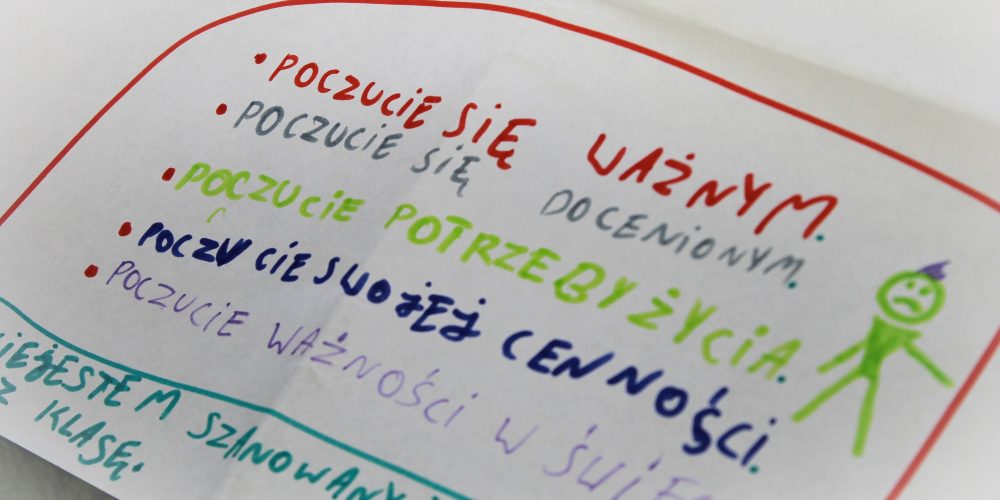 • POCZUCIE SIĘ WAŻNYM.
• POCZUCIE SIĘ DOCENIONYM.
• POCZUCIE POTRZEBY ŻYCIA.
• POCZUCIE SWOJEJ CENNOŚCI.
• POCZUCIE WAŻNOŚCI W
JESTEM
KLASĘ.